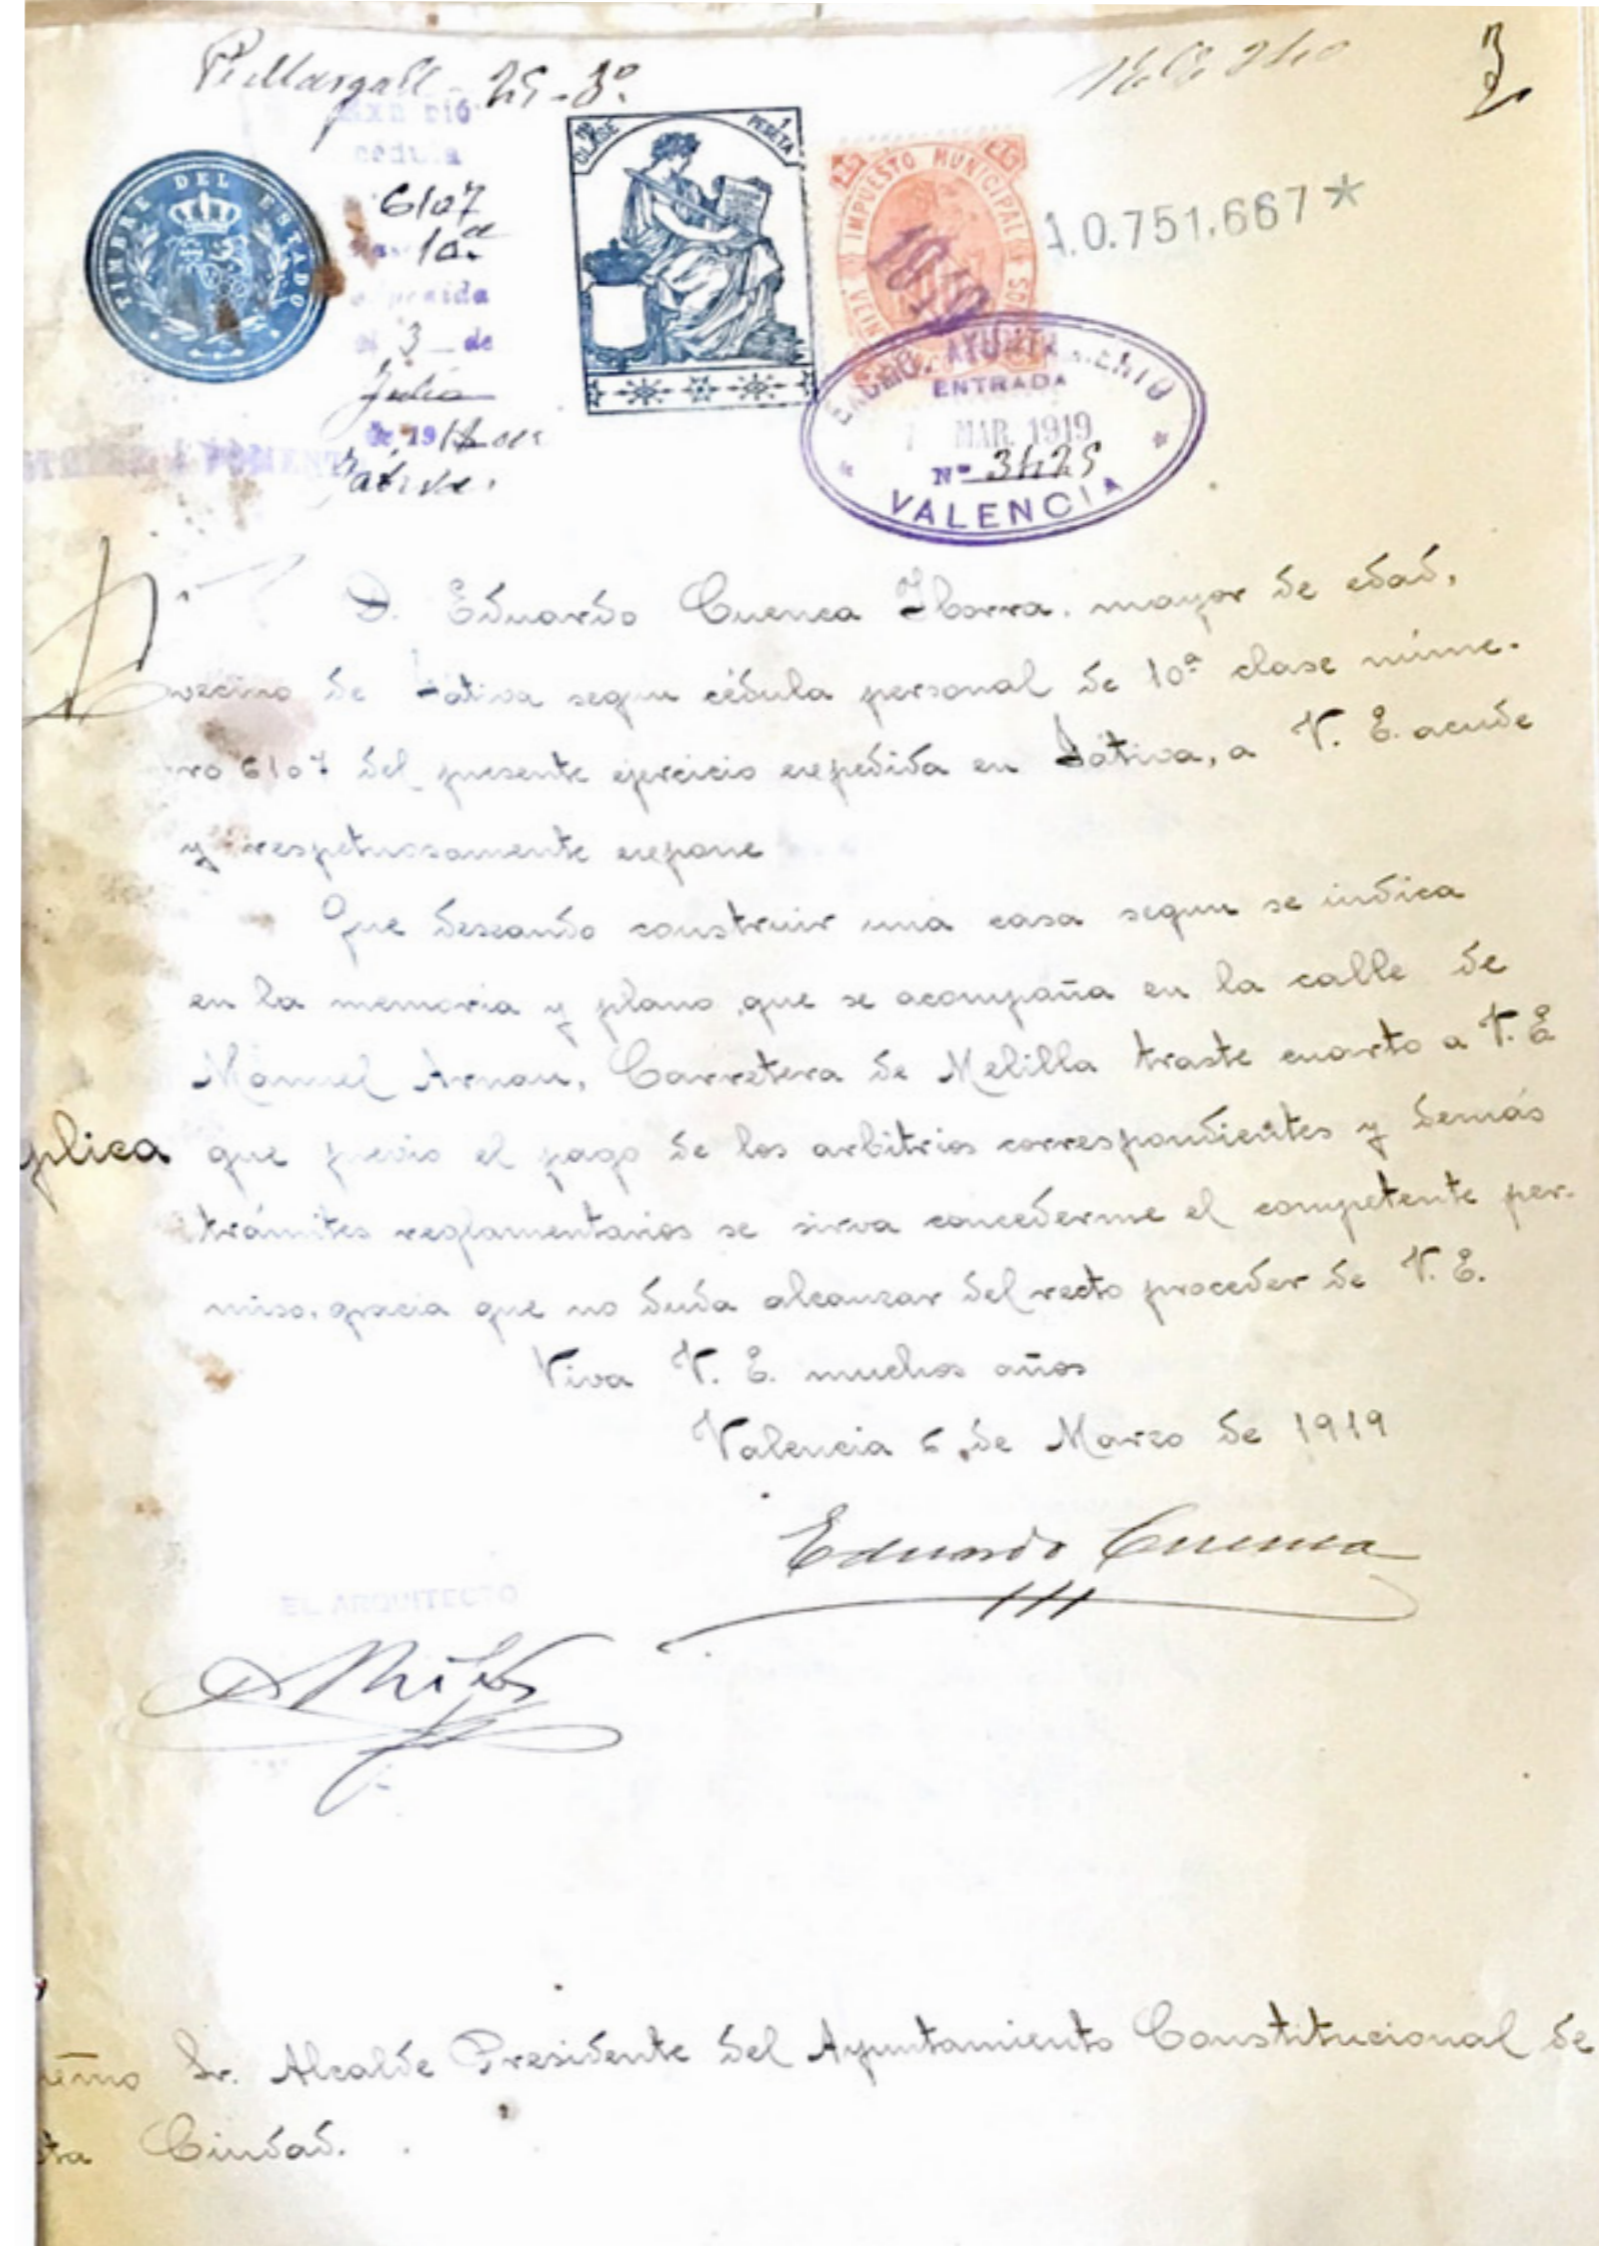 Pi Margall - 25 - 3º
EXHIBIÓ
cédula
6107
clase 10ª
expedida
el 3 de
Julio
de 191 en
Játiva.
TIMBRE DEL ESTADO
CLASE 1 PESETA
IMPUESTO MUNICIPAL
1919
A.0.751.667*
EXCMO. AYUNTAMIENTO
ENTRADA
7 MAR. 1919
Nº 3425
VALENCIA
FOMENTO
D. Eduardo Cuenca Iborra. mayor de edad,
vecino de Játiva segun cédula personal de 10ª clase núme-
ro 6107 del presente ejercicio expedida en Játiva, a V. E. acude
y respetuosamente expone
Que deseando construir una casa segun se indica
en la memoria y plano que se acompaña en la calle de
Manuel Arnau, Carretera de Melilla traste cuarto a V. E
plica que previo el pago de los arbitrios correspondientes y demás
trámites reglamentarios se sirva concederme el competente per-
miso. gracia que no duda alcanzar del recto proceder de V. E.
Viva V. E. muchos años
Valencia 6 de Marzo de 1919
Eduardo Cuenca
EL ARQUITECTO
Sr. Alcalde Presidente del Ayuntamiento Constitucional de
ta Ciudad.